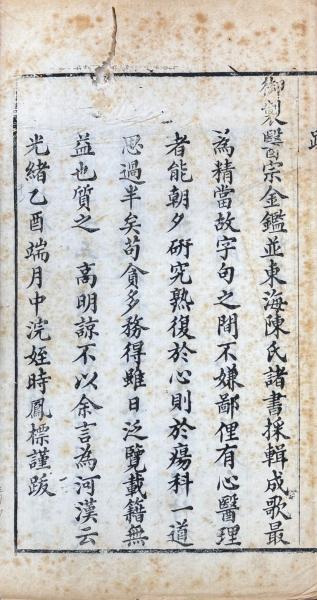 御製醫宗金鑑並東海陳氏諸書採輯成歌最
為精當故字句之間不嫌鄙俚有心醫理
者能朝夕研究熟復於心則於瘍科一道
思過半矣苟貪多務得雖日泛覽載籍無
益也質之 高明諒不以余言為河漢云
光緒乙酉端月中浣姪時鳳標謹跋